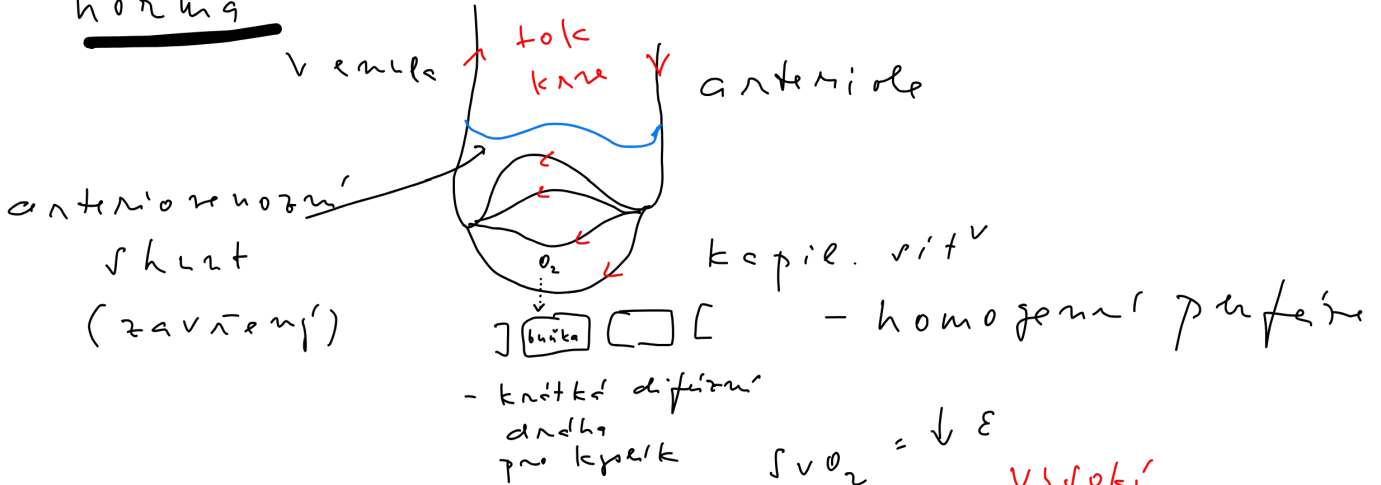 norma
venula
tok
krve
arteriola
arteriovenozní
shunt
(zavřený)
O₂
buňka
kapil. síť
- homogenní perfúze
- krátká difúzní
dráha
pro kyslík
SvO₂ = ↓ ε
vysoký